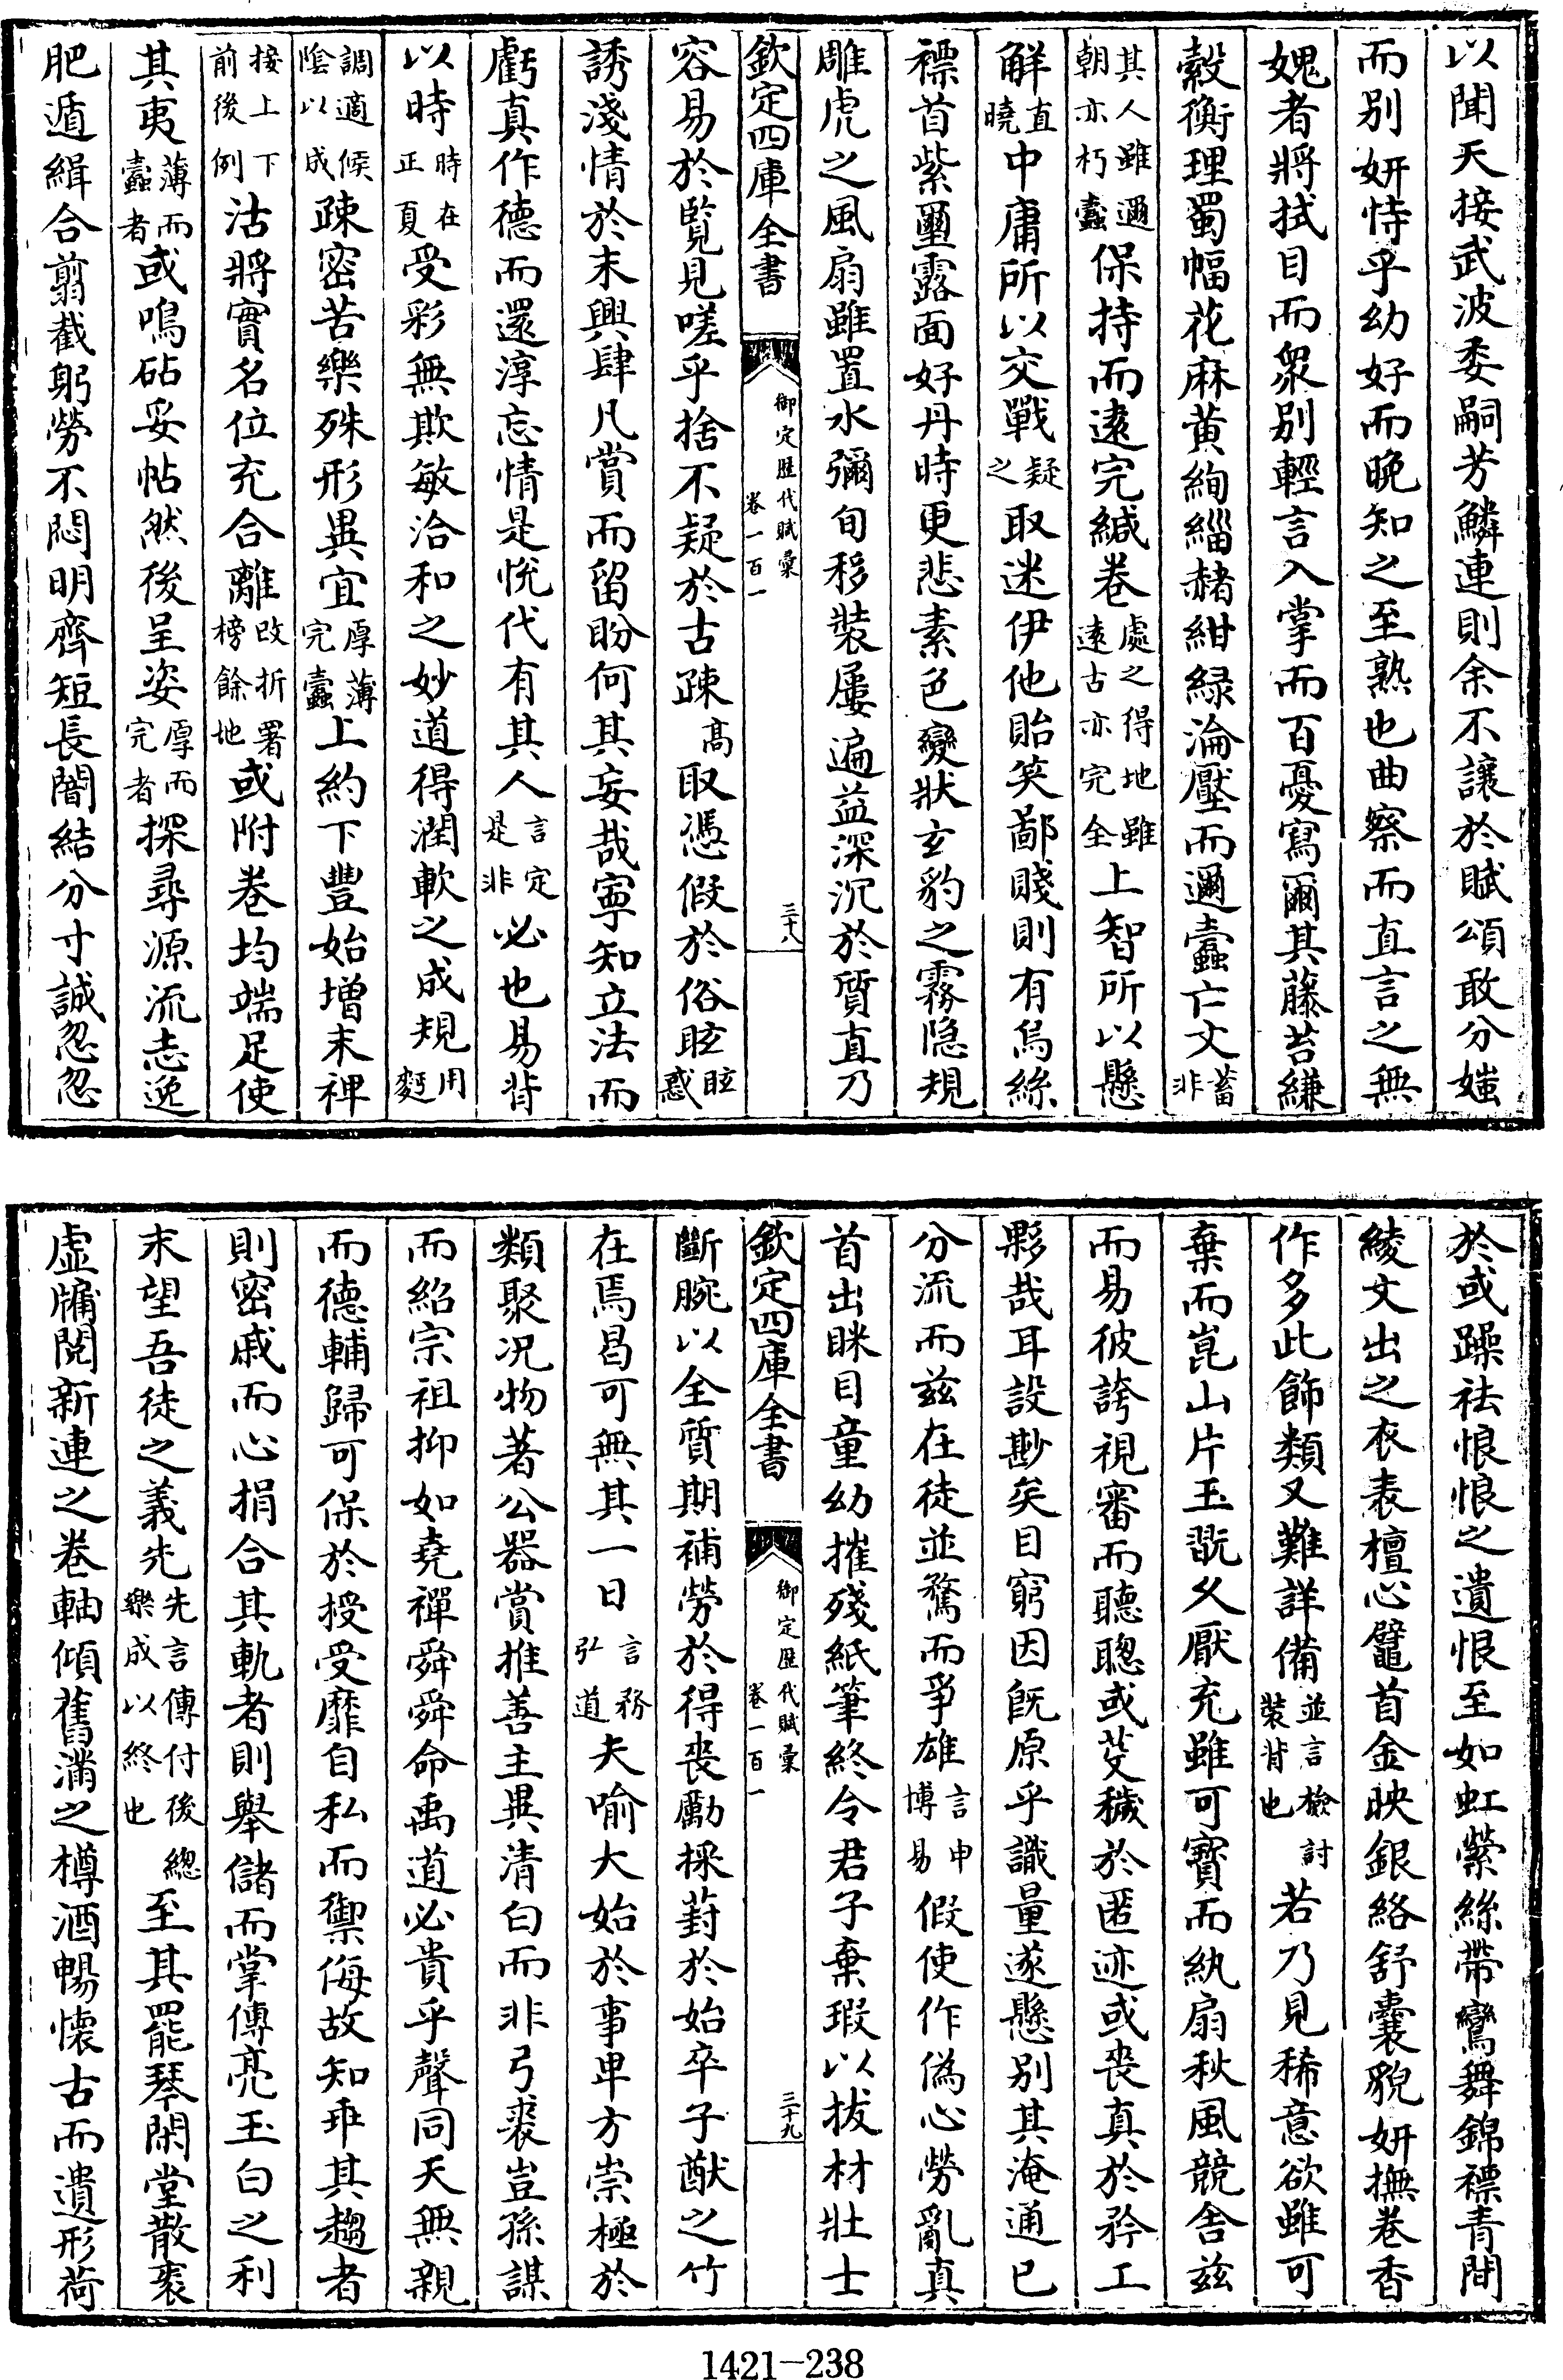 以聞天接武波委嗣芳鱗連則余不讓於賦頌敢分媸
而别妍恃乎幼好而晚知之至熟也曲察而直言之無
媿者將拭目而衆别輕言入掌而百憂寫爾其藤苔縑
縠衡理蜀幅花麻黄絢緇赭紺緑淪壓而邇蠧亡文蓄非
其人雖邇朝亦朽蠧保持而遠完緘卷處之得地雖遠古亦完全上智所以懸
解直曉中庸所以交戰疑之取迷伊他貽笑鄙賤則有烏絲
褾首紫璽露面好丹時更悲素色變狀玄豹之霧隠規
雕虎之風扇雖置水彌旬移裝屢遍益深沉於質直乃
欽定四庫全書
御定歷代賦彙
卷一百一
三十八
容易於覽見嗟乎捨不疑於古疎高取憑假於俗眩眩惑
誘淺情於末興肆凡賞而留盼何其妄哉寜知立法而
虧真作德而還淳忘情是悦代有其人言定是非必也易背
以時時在正夏受彩無欺敏洽和之妙道得潤軟之成規用麪
調適候隂以成疎密苦樂殊形異宜厚薄完蠧上約下豐始增末裨
接上下前後例沽將實名位充合離改折署榜餘地或附卷均端足使
其夷薄而蠧者或鳴砧妥帖然後呈姿厚而完者探尋源流志逸
肥遁緝合翦截躬勞不悶明齊短長闇結分寸誠忽忽
於或躁袪悢悢之遺恨至如虹縈絲帶鸞舞錦褾青間
綾文出之衣表檀心鼊首金映銀絡舒囊貌妍撫卷香
作多此飾類又難詳備並言檢討裝背也若乃見稀意欲雖可
棄而崑山片玉翫久厭充雖可寳而紈扇秋風競舍兹
而易彼誇視審而聽聰或芟穢於匿迹或喪真於矜工
夥哉耳設尠矣目窮因旣原乎識量遂懸别其淹通已
分流而兹在徒並騖而爭雄言申博易假使作偽心勞亂真
首出眯目童幼摧殘紙筆終令君子棄瑕以拔材壯士
欽定四庫全書
御定歷代賦彙
卷一百一
三十九
斷腕以全質期補勞於得喪勵採葑於始卒子猷之竹
在焉曷可無其一日言務弘道夫喻大始於事卑方崇極於
類聚况物著公器賞推善主異清白而非弓裘豈孫謀
而紹宗祖抑如堯禪舜舜命禹道必貴乎聲同天無親
而德輔歸可保於授受靡自私而禦侮故知乖其趨者
則密戚而心捐合其軌者則舉儲而掌傳亮玉白之利
末望吾徒之義先先言傳付後樂成以終也總至其罷琴閑堂散袠
虚牖閲新連之卷軸傾舊滿之樽酒暢懷古而遺形荷
1421-238